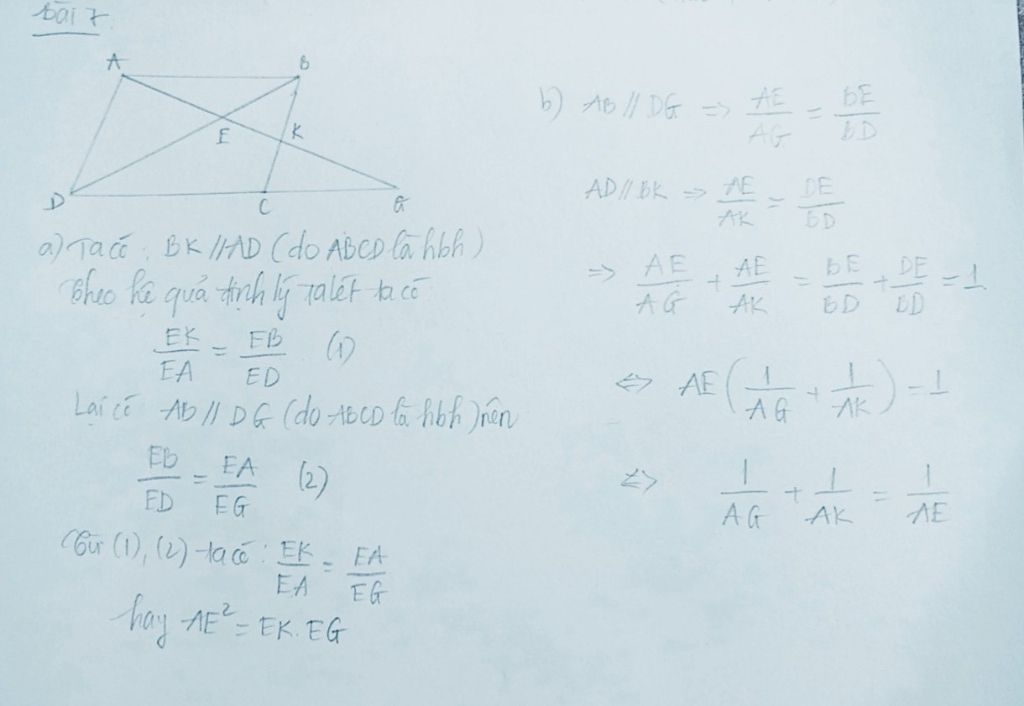 Bài 7.
A B
E K
D C G
a) Ta có: BK // AD (do ABCD là hbh)
Theo hệ quả định lý Talét ta có
EK/EA = EB/ED (1)
Lại có AB // DG (do ABCD là hbh) nên
EB/ED = EA/EG (2)
Từ (1), (2) ta có: EK/EA = EA/EG
hay AE² = EK. EG
b) AB // DG => AE/AG = BE/BD
AD // BK => AE/AK = DE/BD
=> AE/AG + AE/AK = BE/BD + DE/BD = 1
<=> AE(1/AG + 1/AK) = 1
<=> 1/AG + 1/AK = 1/AE